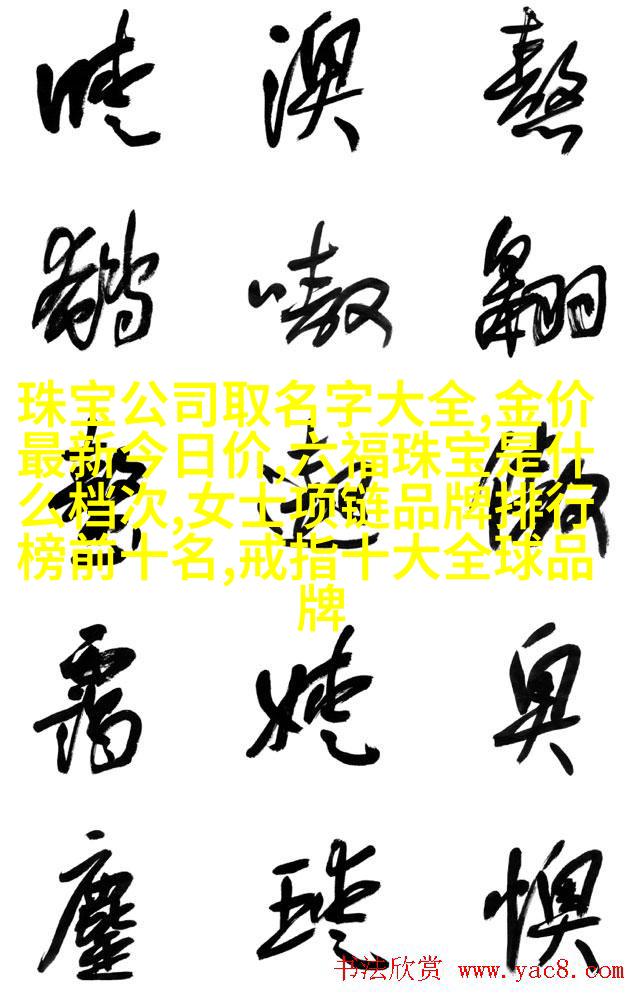 暧 澳 熬
嗷 翱
珠宝公司取名字大全,金价
最新今日价,六福珠宝是什
么档次,女士项链品牌排行
榜前十名,戒指十大全球品
牌
霭 嫒 奥
鏖 瑷 懊
书法欣赏 www.yac8.com